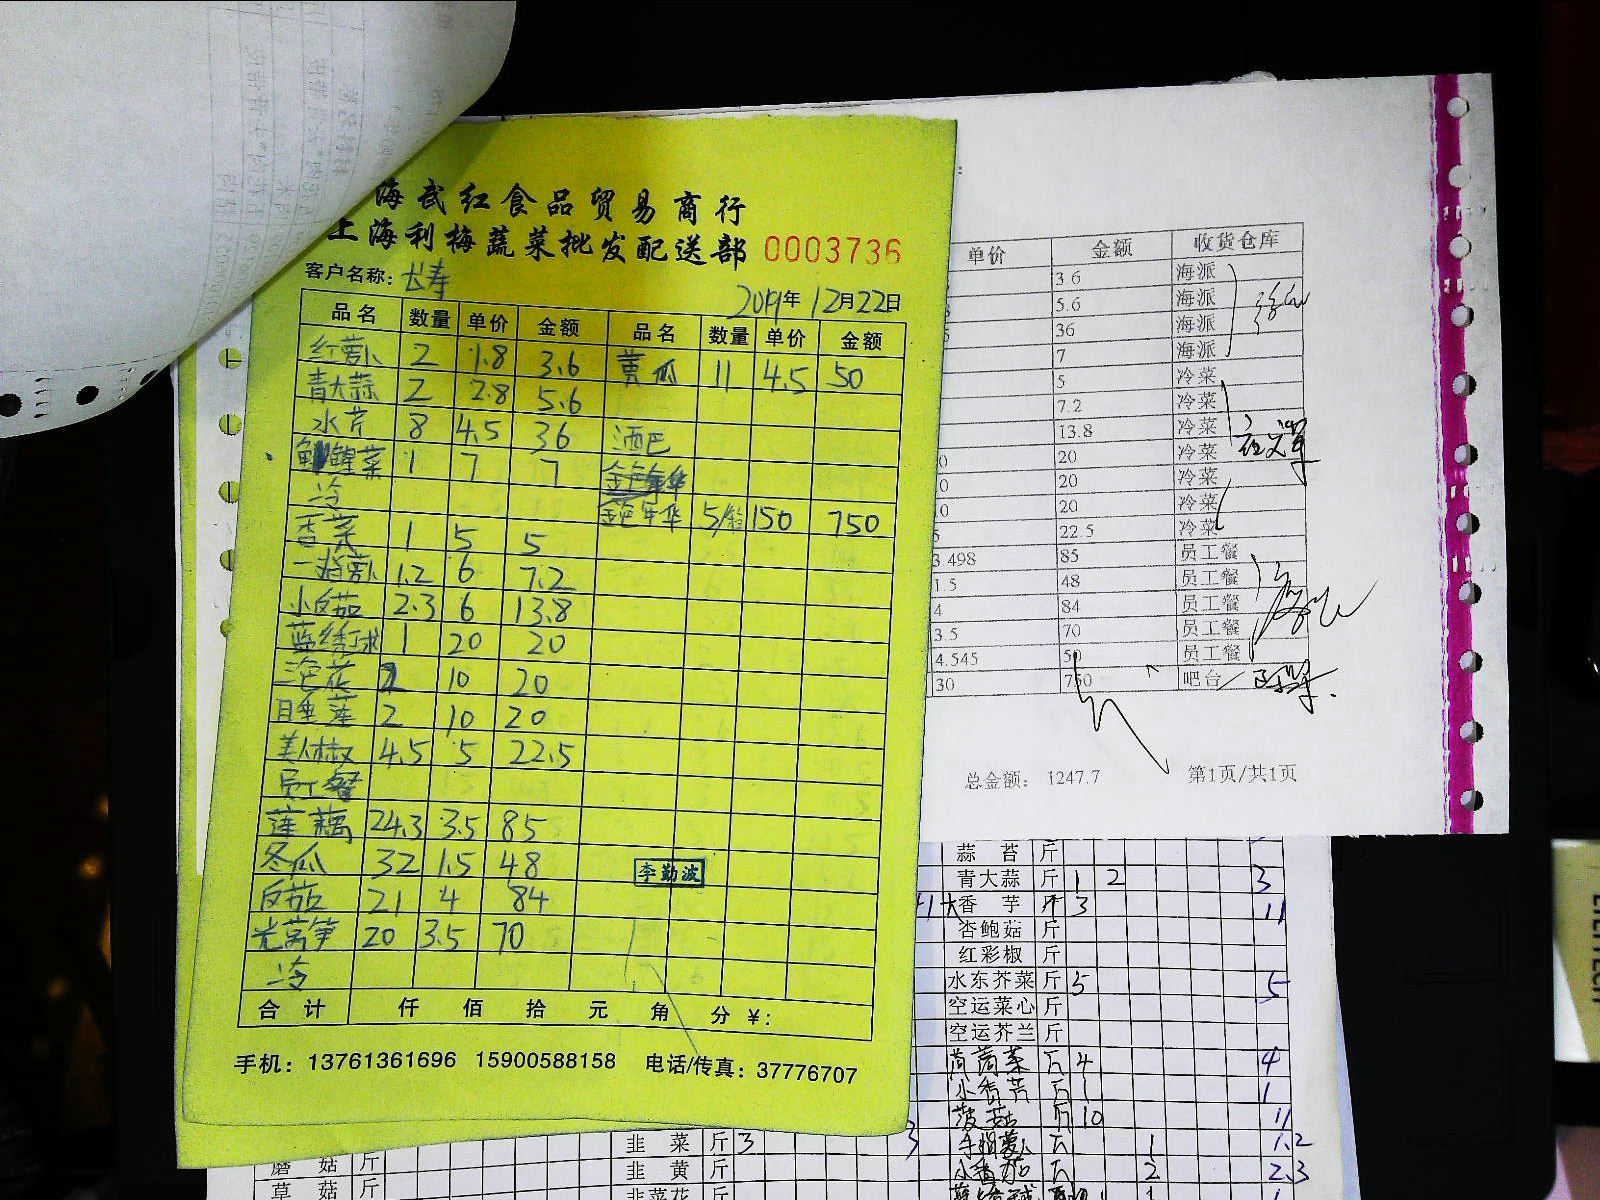 海武红食品贸易商行
上海利梅蔬菜批发配送部 0003736
客户名称: 长寿
2019年 12月22日
品名 数量 单价 金额 品名 数量 单价 金额
红萝卜 2 1.8 3.6 黄瓜 11 4.5 50
青大蒜 2 2.8 5.6
水芹 8 4.5 36 酒巴
腥菜 1 7 7
冷 金色年华 5/箱 150 750
香菜 1 5 5
1.2 6 7.2
小茄 2.3 6 13.8
蓝绣球 1 20 20
2 10 20
睡莲 2 10 20
美人椒 4.5 5 22.5
员工餐
莲藕 24.3 3.5 85
冬瓜 32 1.5 48
茄 21 4 84
光莴笋 20 3.5 70
冷
李勤波
合计 仟 佰 拾 元 角 分 ¥:
手机: 13761361696 15900588158 电话/传真: 37776707
单价 金额 收货仓库
3.6 海派
5.6 海派
36 海派
7 海派
5 冷菜
7.2 冷菜
13.8 冷菜
0 20 冷菜
0 20 冷菜
0 20 冷菜
5 22.5 冷菜
3.498 85 员工餐
1.5 48 员工餐
4 84 员工餐
3.5 70 员工餐
4.545 50 员工餐
30 750 吧台
总金额: 1247.7 第1页/共1页
蒜苔 斤
青大蒜 斤 1 2 3
香芋 斤 3 11
杏鲍菇 斤
红彩椒 斤
水东芥菜 斤 5 5
空运菜心 斤
空运芥兰 斤
茼蒿菜 斤 4 4
小香芹 斤 1 1
菠菇 斤 10 11
韭菜 斤 3 3 手指萝卜 斤 1 1.2
蘑菇 斤 韭黄 斤 小番茄 斤 2 2.3
草菇 斤 韭菜花 斤